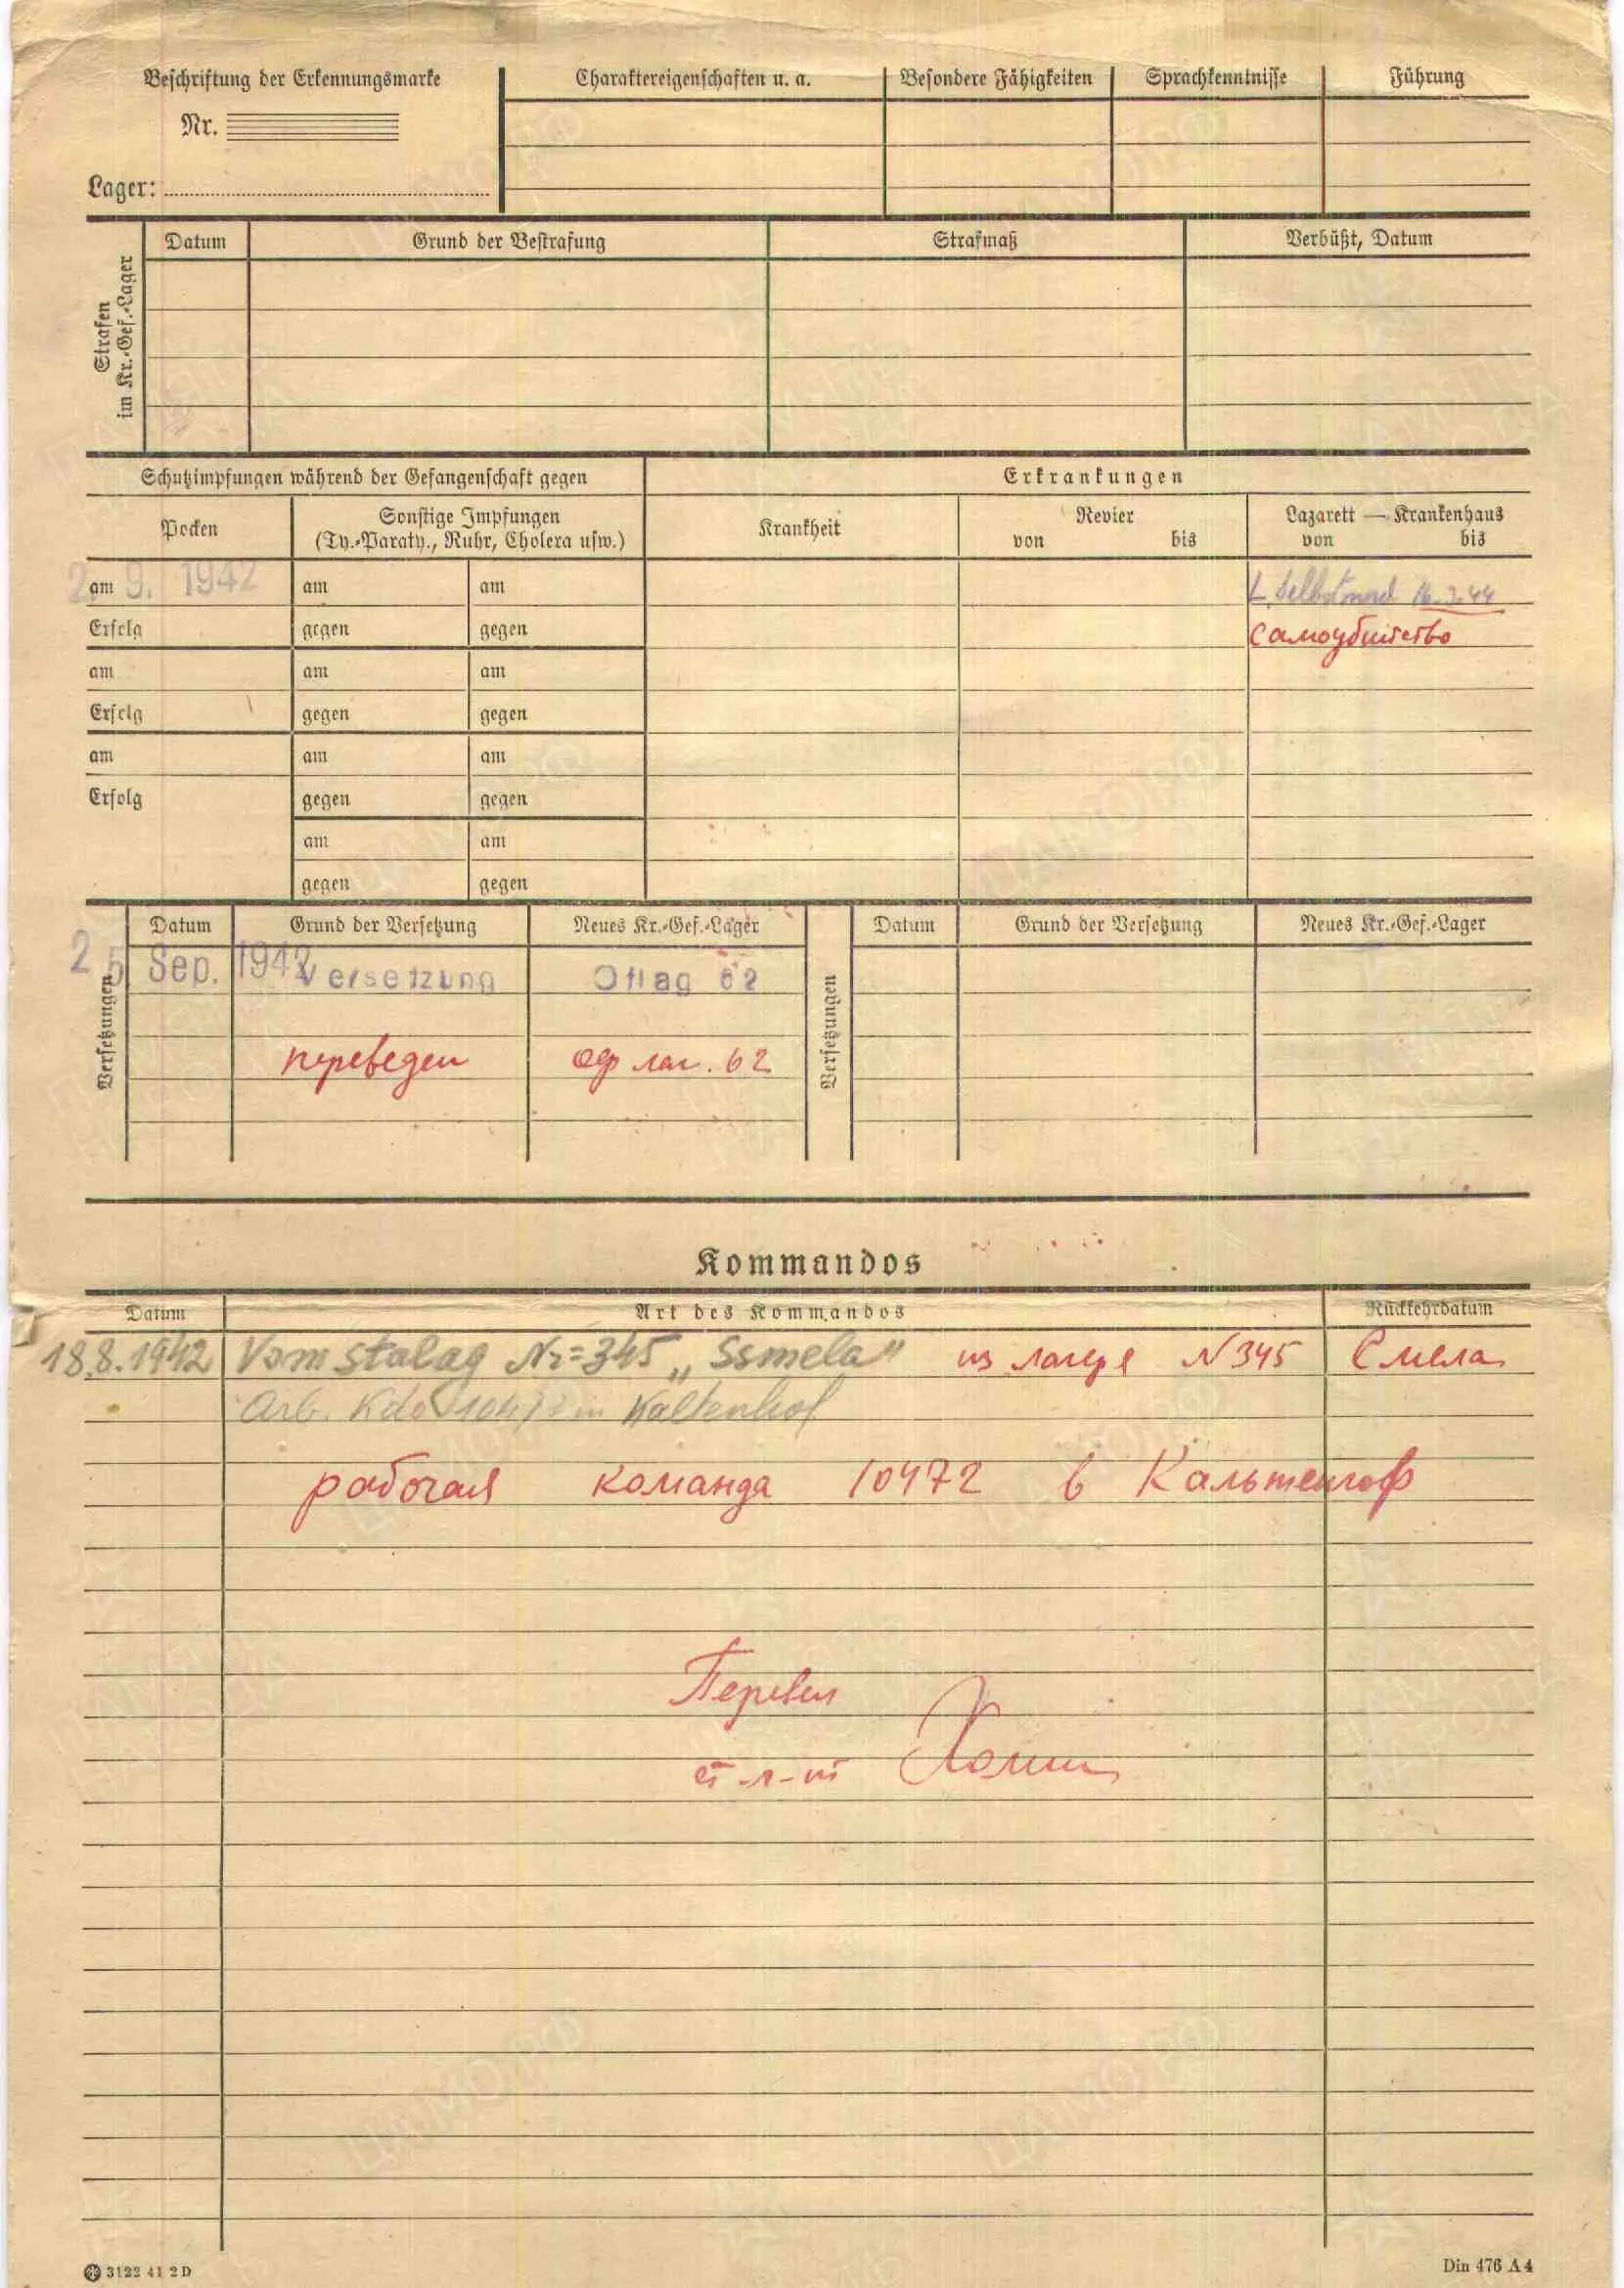 Beschriftung der Erkennungsmarke
Nr.
Lager:
Charaktereigenschaften u. a.
Besondere Fähigkeiten
Sprachkenntnisse
Führung
Strafen
im Kr.-Gef.-Lager
Datum
Grund der Bestrafung
Strafmaß
Verbüßt, Datum
Schutzimpfungen während der Gefangenschaft gegen
Erkrankungen
Pocken
Sonstige Impfungen
(Ty.-Paraty., Ruhr, Cholera usw.)
Krankheit
Revier
von bis
Lazarett — Krankenhaus
von bis
am 9. 1942 am am
Selbstmord 16.2.44
Erfolg gegen gegen
самоубийство
am am am
Erfolg gegen gegen
am am am
Erfolg gegen gegen
am am
gegen gegen
Versetzungen
Datum Grund der Versetzung Neues Kr.-Gef.-Lager
25 Sep. 1942 Versetzung Oflag 62
переведен оф лаг. 62
Versetzungen
Datum Grund der Versetzung Neues Kr.-Gef.-Lager
Kommandos
Datum Art des Kommandos Rückkehrdatum
18.8.1942 Vom stalag Nr=345 „Ssmela" из лагеря N 345 Смела
Arb. Kdo 10472 in Kaltenhof
рабочая команда 10472 в Кальтенгоф
Перевел
ст л-т
3122 41 2D
Din 476 A4